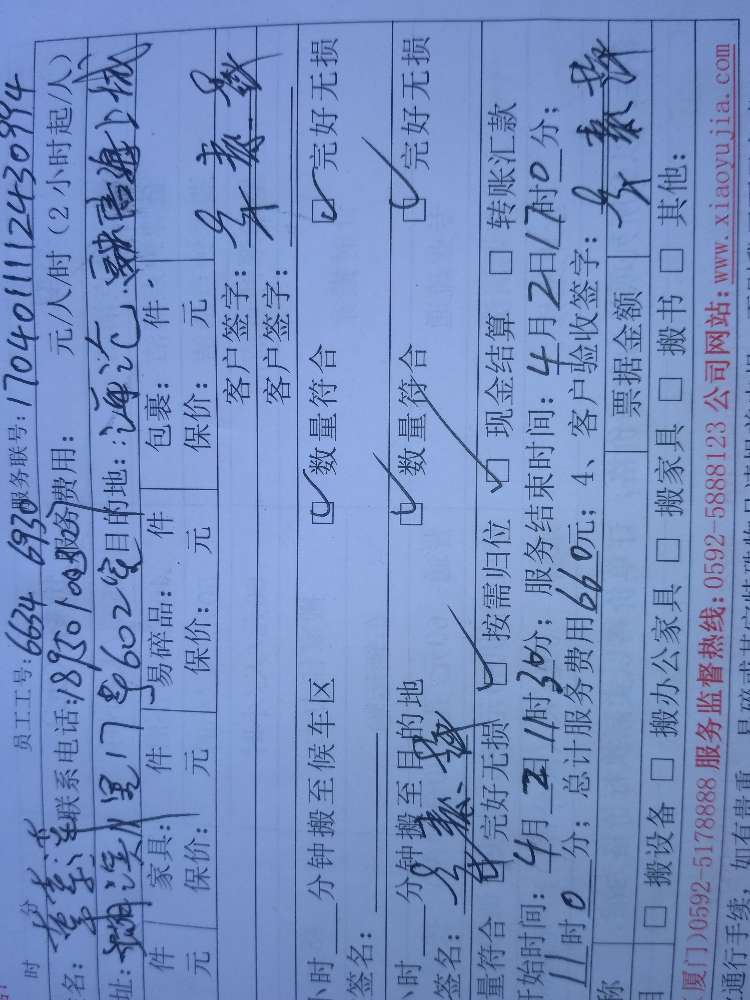 时 分 员工工号: 6634 6930 服务联号: 17040111112430994
名: 联系电话: 服务费用: 元/人/时（2小时起/人）
址: 湖滨 里17号602室 目的地: 海沧
件 家具: 件 易碎品: 件 包裹: 件
元 保价: 元 保价: 元 保价: 元
客户签字:
客户签字:
小时 分钟搬至候车区 数量符合 完好无损
签名:
小时 分钟搬至目的地 数量符合 完好无损
签名:
量符合 完好无损 按需归位 现金结算 转账汇款
开始时间: 4月2日11时30分; 服务结束时间: 4月2日17时0分;
11时0分; 总计服务费用660元; 4、客户验收签字:
称 票据金额
目 搬设备 搬办公家具 搬家具 搬书 其他:
厦门)0592-5178888 服务监督热线: 0592-5888123 公司网站: www.xiaoyujia.com
通行手续，如有贵重、易碎或其它特殊